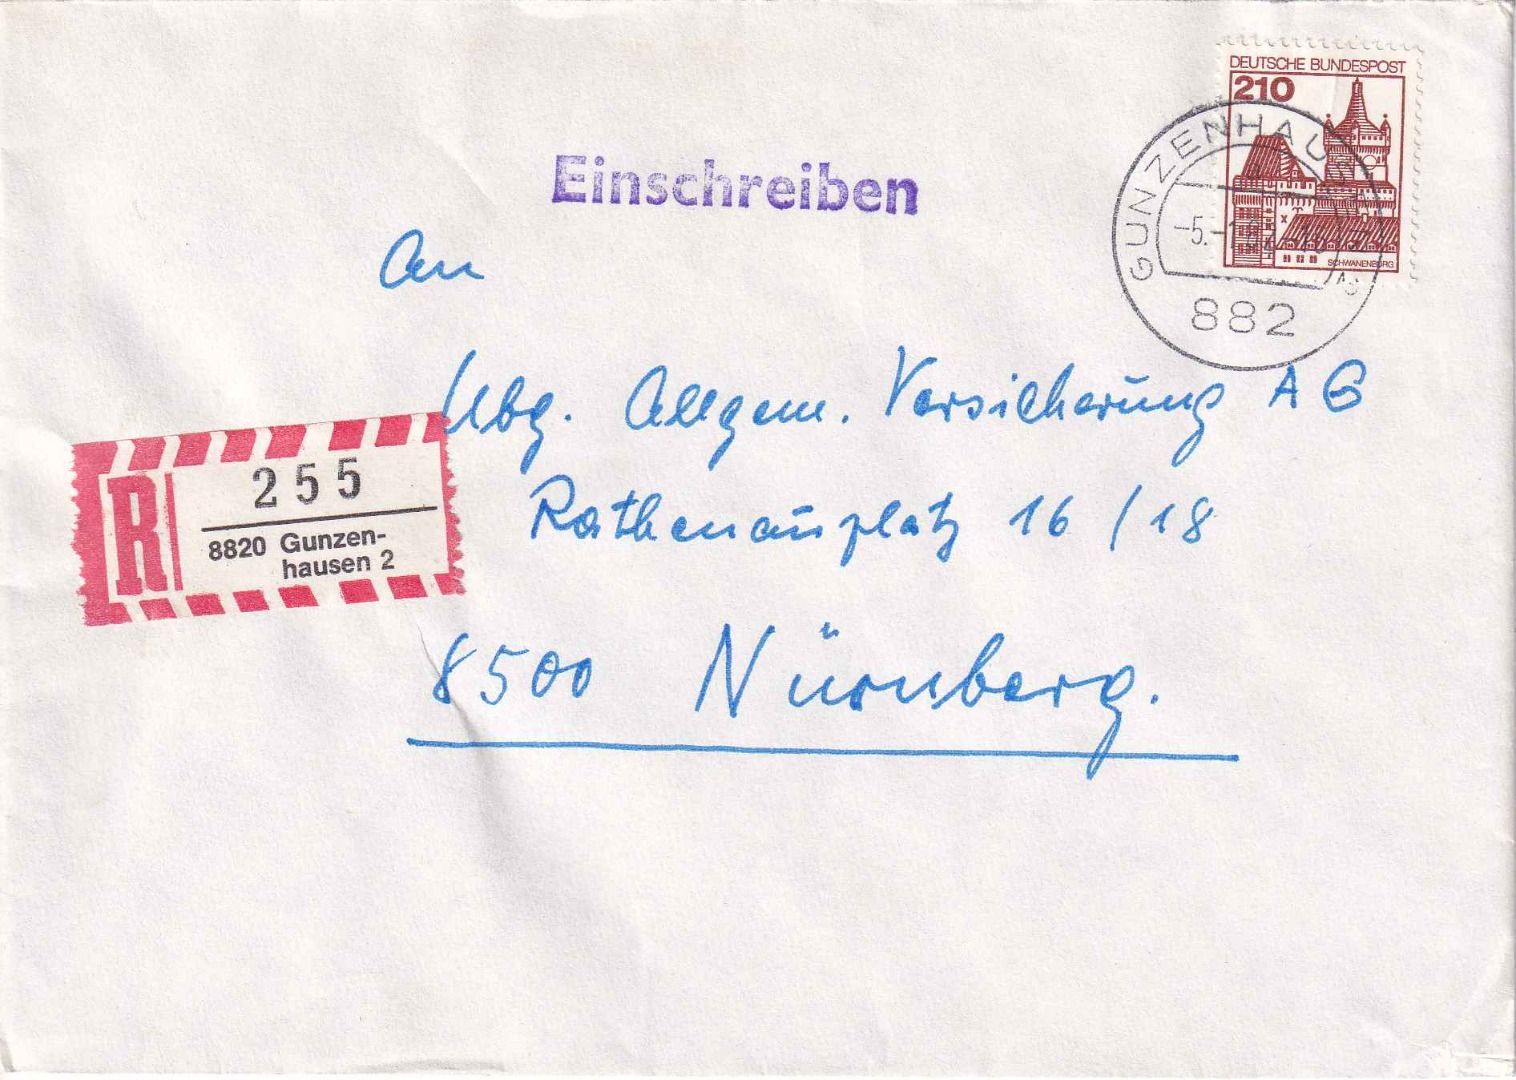 DEUTSCHE BUNDESPOST
210
SCHWANENBURG
GUNZENHAUSEN
882
Einschreiben
An
Nbg. Allgem. Versicherung AG
Rathenauplatz 16/18
8500 Nürnberg.
R
255
8820 Gunzen-
hausen 2